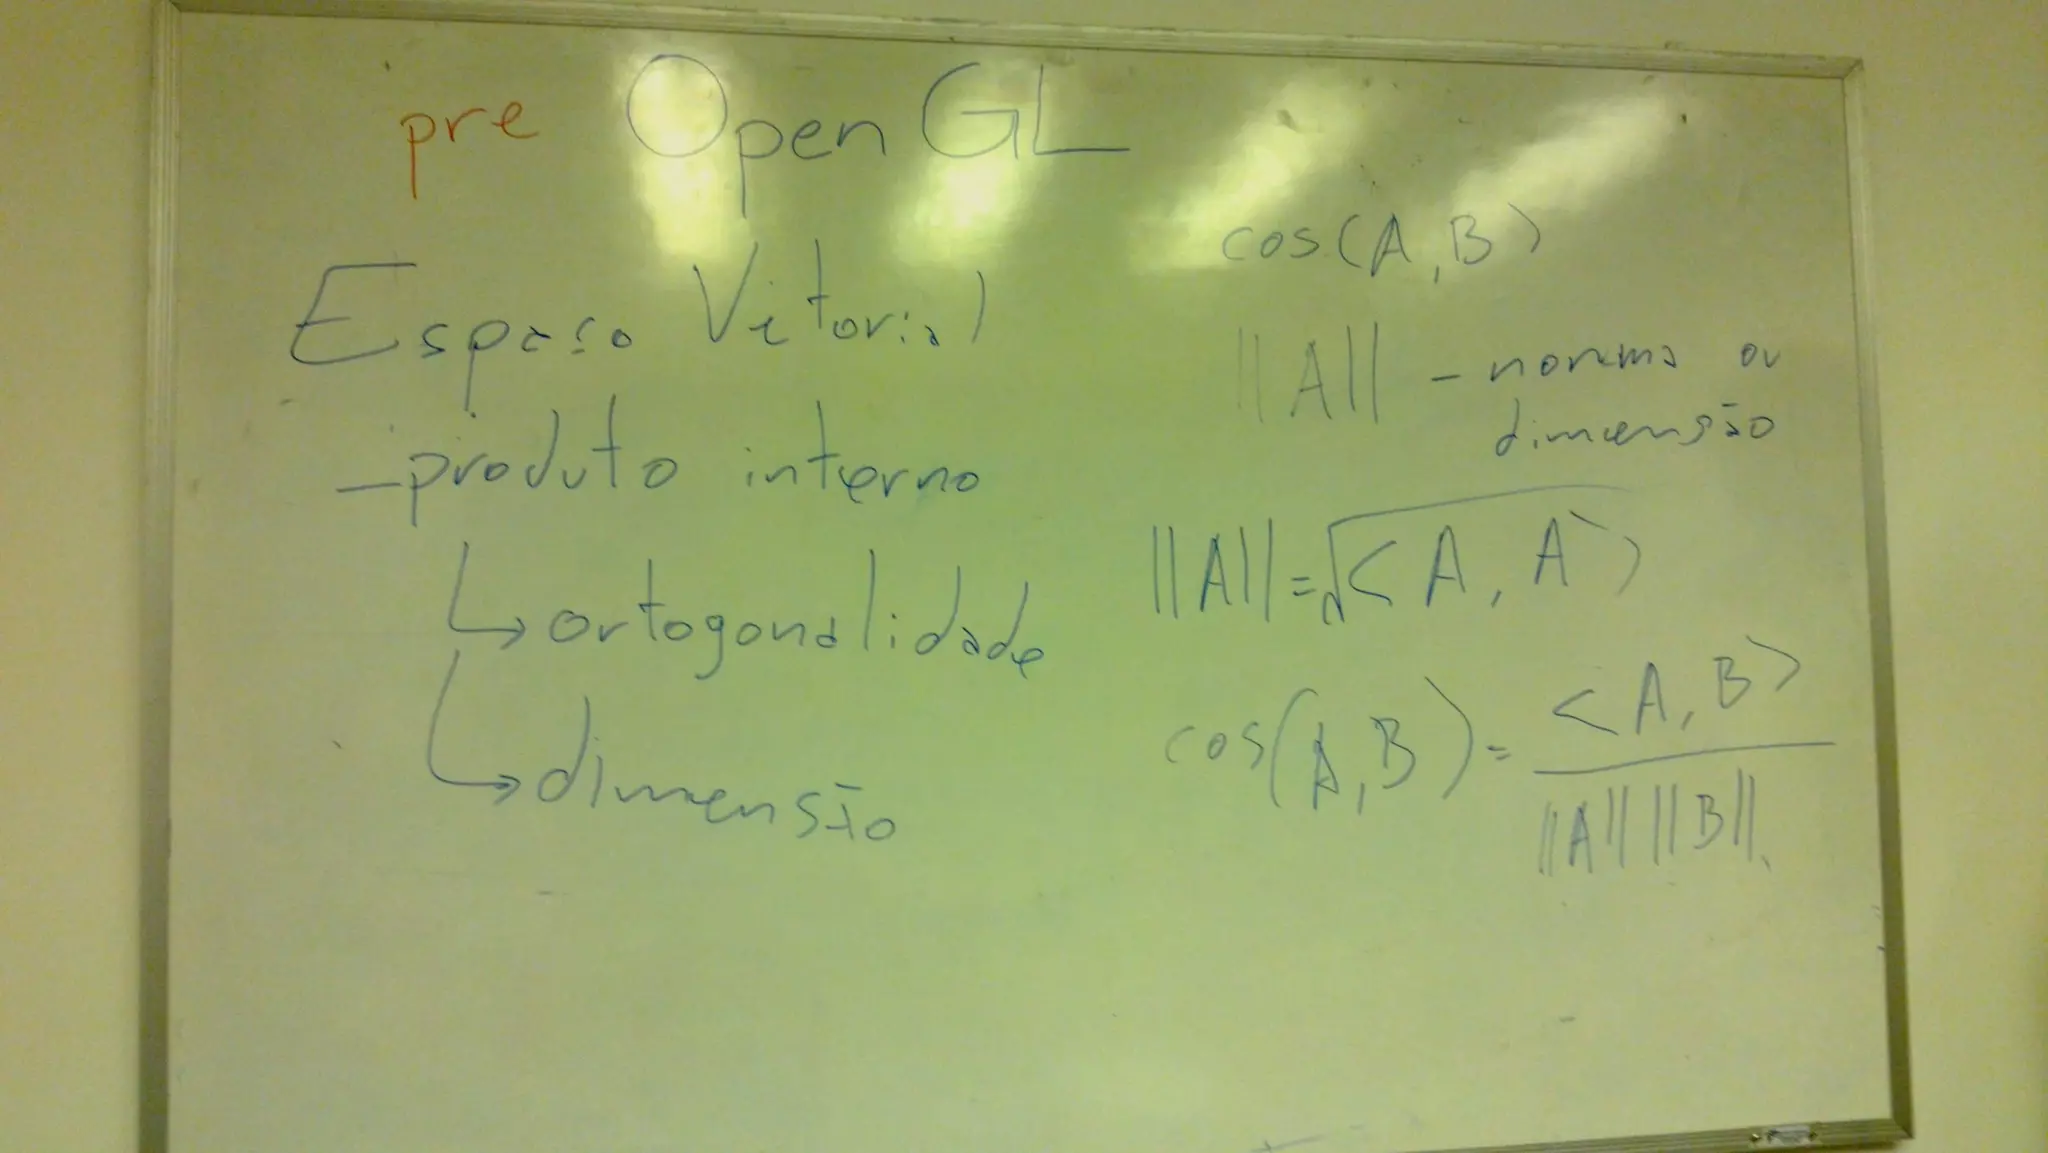 pre OpenGL
Espaço Vetorial
- produto interno
↳ ortogonalidade
↳ dimensão
cos(A, B)
||A|| - norma ou
dimensão
||A|| = √<A, A>
cos(A, B) = <A, B>
||A|| ||B||